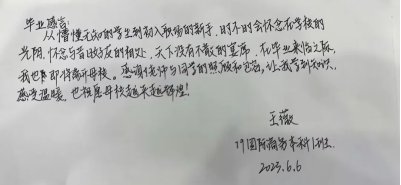 毕业感言：
从懵懂无知的学生到初入职场的新手，时不时会怀念在学校的
光阴，怀念与昔日好友的相处，天下没有不散的宴席，在毕业来临之际，
我也即将离开母校。感谢老师与同学的照顾和包容，让我学到知识，
感受温暖，也祝愿母校越来越辉煌！
王薇
19国际商务本科1班
2023.6.6